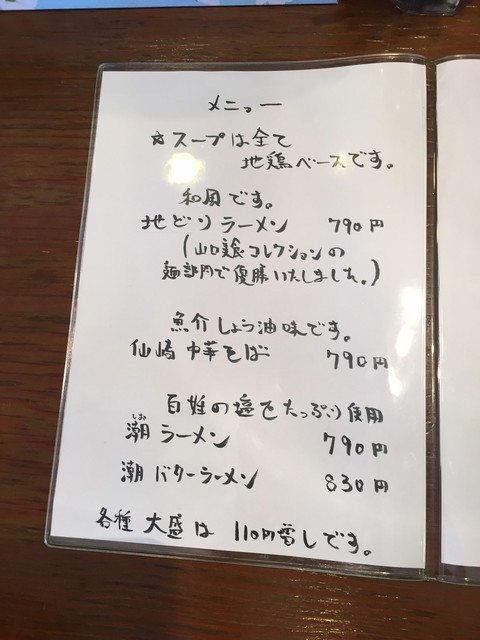 メニュー
☆スープは全て
地鶏ベースです。
和風です。
地どりラーメン 790円
(山口美食コレクションの
麺部門で優勝いたしました。)
魚介しょう油味です。
仙崎中華そば 790円
百姓の塩をたっぷり使用
潮ラーメン 790円
しお
潮バターラーメン 830円
各種 大盛は 110円増しです。